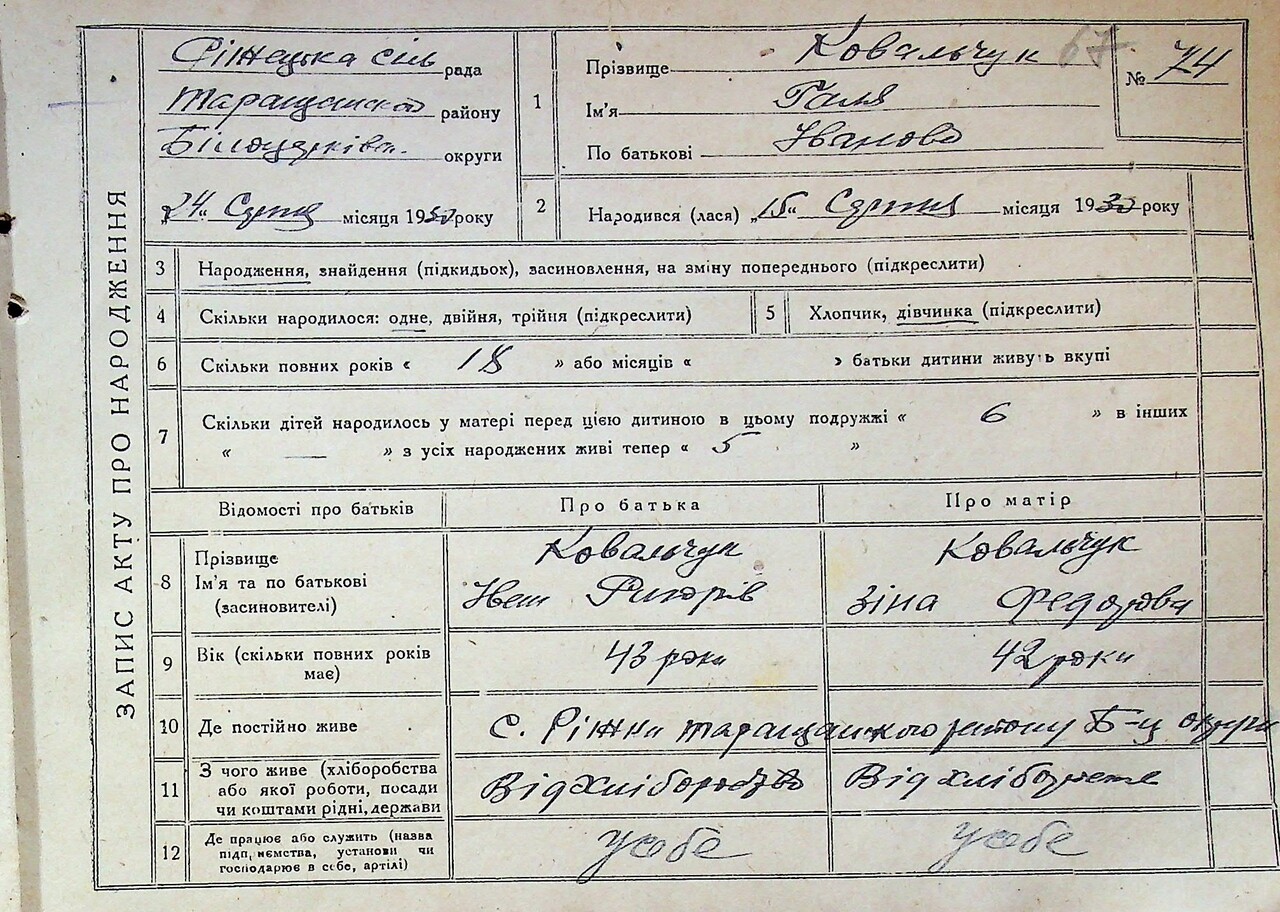 ЗАПИС АКТУ ПРО НАРОДЖЕННЯ
Ріжецька сіль рада
Таращанского району
Білоцерків. округи
„24“ Серпня місяця 1930 року
1
Прізвище Ковальчук
Ім'я Галя
По батькові Іванова
67
№ 74
2
Народився (лася) „15“ Серпня місяця 1930 року
3 Народження, знайдення (підкидьок), засиновлення, на зміну попереднього (підкреслити)
4 Скільки народилося: одне, двійня, трійня (підкреслити)
5 Хлопчик, дівчинка (підкреслити)
6 Скільки повних років « 18 » або місяців « » батьки дитини живуть вкупі
7 Скільки дітей народилось у матері перед цією дитиною в цьому подружжі « 6 » в інших
« — » з усіх народжених живі тепер « 5 »
Відомості про батьків Про батька Про матір
8 Прізвище
Ім'я та по батькові
(засиновителі)
Ковальчук
Іван Григорів
Ковальчук
Зіна Федорова
9 Вік (скільки повних років
має)
43 роки
42 роки
10 Де постійно живе
с. Ріжки Таращанского району Б-ц округи
11 З чого живе (хліборобства
або якої роботи, посади
чи коштами рідні, держави
Від хліборобство
Від хліборобства
12 Де працює або служить (назва
підприємства, установи чи
господарює в себе, артілі)
у себе
у себе